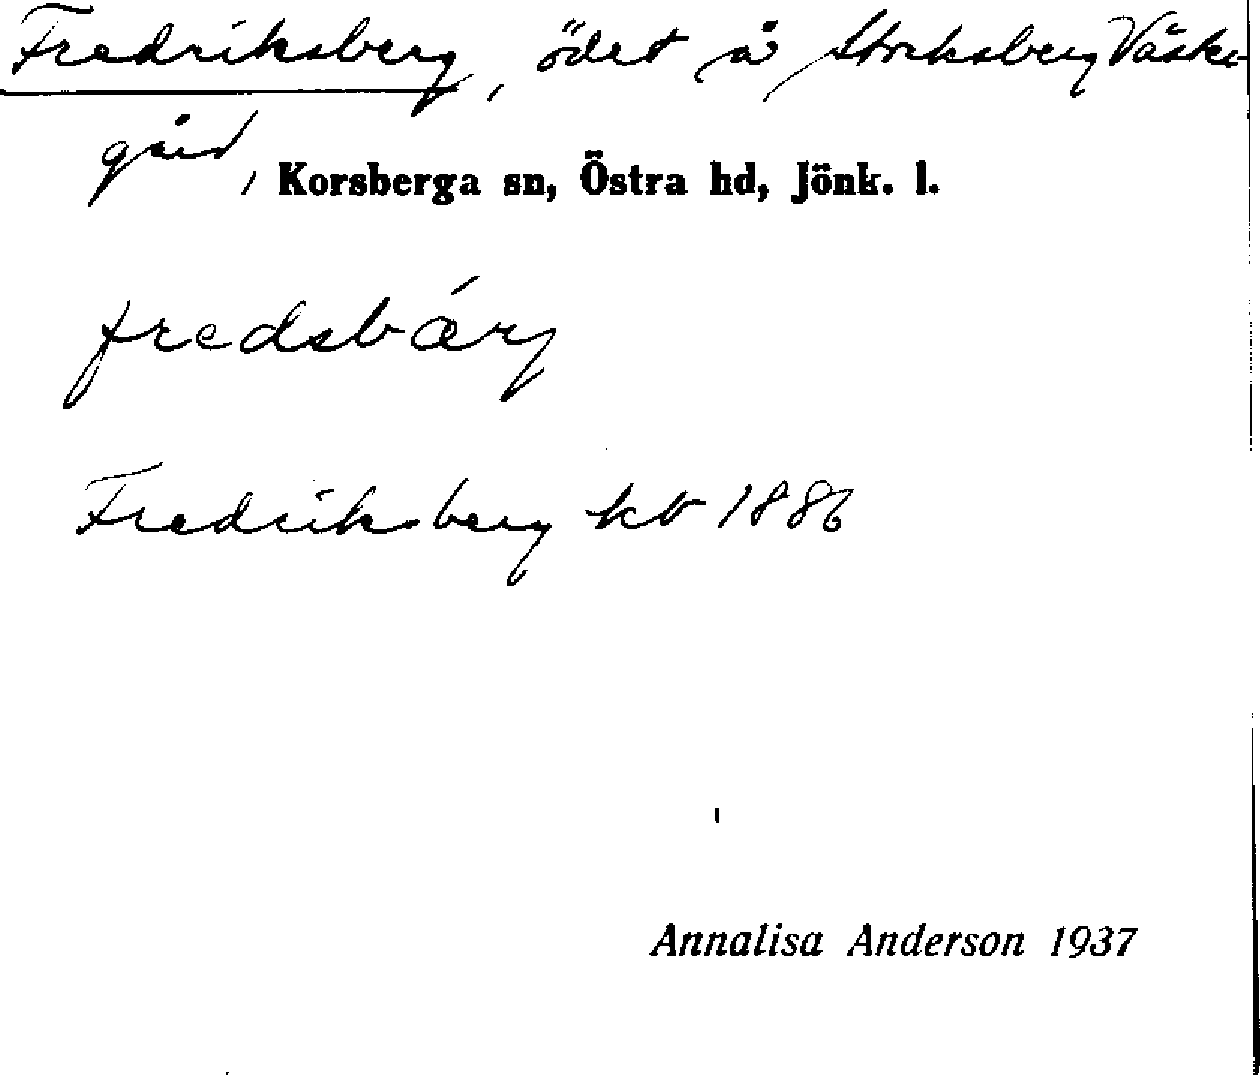 Fredriksberg, ödet å Storksberg Väster-
gård, Korsberga sn, Östra hd, Jönk. l.
fredsbárj
Fredriksberg kb 1886
Annalisa Anderson 1937